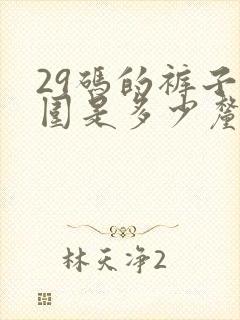 29碼的裤子
围是多少釐
林天净2